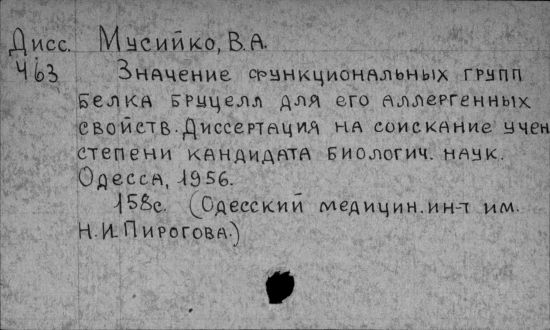 Дисс. Мусийко, В.А.
463 Значение функциональных групп
белка бруцелл для его аллергенных
свойств. Диссертация на соискание учен
степени кандидата биологич. наук.
Одесса, 1956.
158с. (Одесский медицин. ин-т им.
Н.И.Пирогова.)